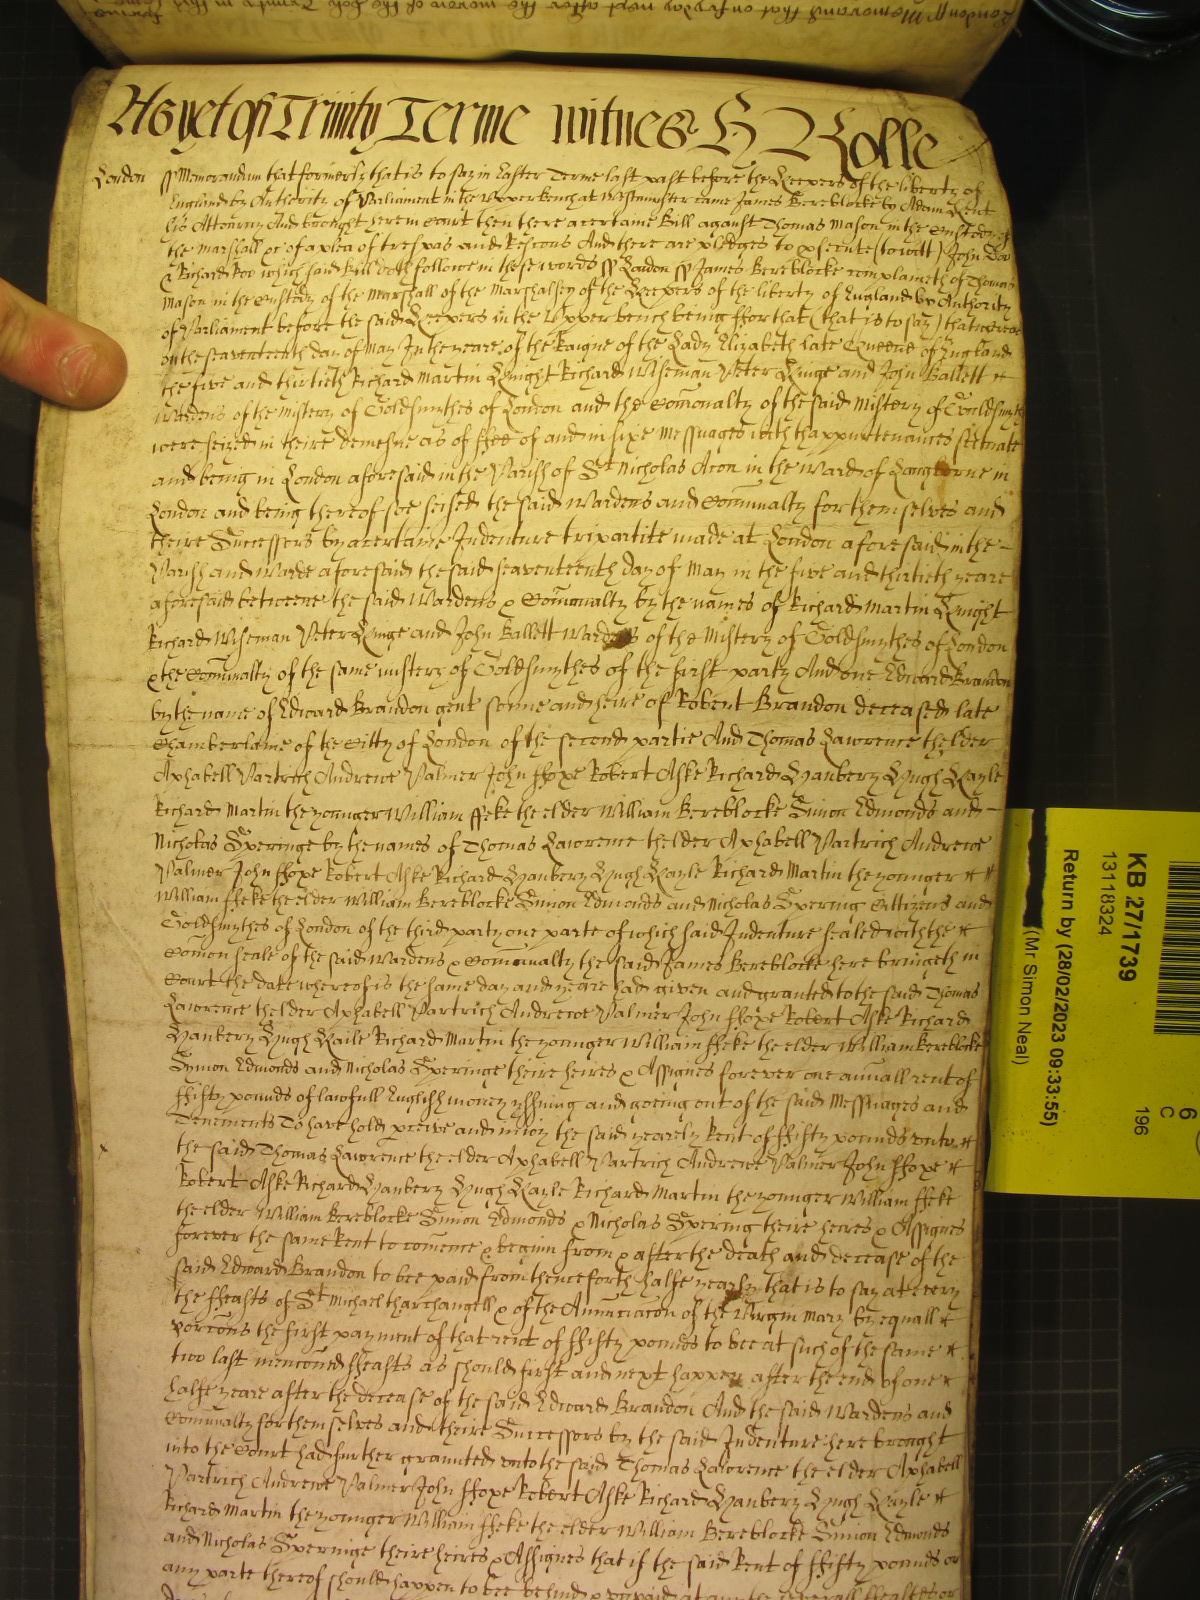 As yet of Trinity Terme witnes H Rolle
London ss Memorandum that formerly that is to say in Easter Terme last past before the Keepers of the liberty of
England by Authority of Parliament in the Upper bench at Westminster came James Bereblocke by Adam
his Attourny And brought here in Court then there a certaine Bill against Thomas Mason in the Custody of
the Marshall &c of a plea of trespas and Eiectons And there are pledges to psecute (to witt) John Doo
& Richard Roo which said Bill doth followe in these words ss London ss James Bereblocke complaineth of Thomas
Mason in the Custody of the Marshall of the Marshalsey of the Keepers of the liberty of England by Authority
of Parliament before the said Keepers in the Upper bench being ffor that (that is to say) that whereas
on the seaventeenth day of May In the yeare of the Raigne of the Lady Elizabeth late Queene of England
the five and thirtieth Richard Martin Knight Richard Wiseman Peter Kinge and John Ballett
Wardens of the Mistery of Goldsmythes of London and the Comonalty of the said Mistery of Gouldsmyth
were seized in theire demesne as of ffee of and in sixe Messuages with thappurtenances scituate
and being in London aforesaid in the Parish of St Nicholas Acon in the Ward of Langborne in
London and being thereof soe seised the said Wardens and Comunalty for themselves and
theire Successors by a certaine Indenture tripartite made at London aforesaid in the
Parish and Warde aforesaid the said seaventeenth day of May in the five and thirtieth yeare
aforesaid betweene the said Wardens & Comonalty by the names of Richard Martin Knight
Richard Wiseman Peter Kinge and John Ballett Wardens of the Mistery of Goldsmythes of London
& the Comunalty of the same mistery of Goldsmythes of the first party And one Edward Brandon
by the name of Edward Brandon gent sonne and heire of Robert Brandon deceased late
Chamberlaine of the Citty of London of the second partie And Thomas Lawrence thelder
Aphabell Partrich Andrewe Palmer John ffoxe Robert Aske Richard Hanbery Hugh Kayle
Richard Martin the younger William ffeke the elder William Bereblocke Simon Edmonds and
Nicholas Speringe by the names of Thomas Lawrence thelder Aphabell Partrich Andrewe
Palmer John ffoxe Robert Aske Richard Hanbery Hugh Kayle Richard Martin the younger
William ffeke the elder William Bereblocke Simon Edmonds and Nicholas Spering Cittizens and
Goldsmythes of London of the third party one parte of which said Indenture sealed with the
Comon seale of the said Wardens & Comonalty the said James Bereblocke here bringeth in
Court the date whereof is the same day and yeare had given and granted to the said Thomas
Lawrence thelder Aphabell Partrich Andrewe Palmer John ffoxe Robert Aske Richard
Hanbery Hugh Kaile Richard Martin the younger William ffeke the elder William Bereblocke
Symon Edmonds and Nicholas Speringe theire heires & Assignes forever one annuall rent of
ffifty pounds of lawfull English money yssuing and goeing out of the said Messuages and
Tenements To have hold pceive and enioy the said yearely Rent of ffifty pounds unto
the said Thomas Lawrence the elder Aphabell Partrich Andrewe Palmer John ffoxe
Robert Aske Richard Hanbery Hugh Kayle Richard Martin the younger William ffeke
the elder William Bereblocke Simon Edmonds & Nicholas Spering theire heires & Assignes
forever the same Rent to comence & beginn from & after the death and decease of the
said Edward Brandon to bee paid from thenceforth halfe yearly that is to say at every
the ffeasts of St Michael tharchangell & of the Anunciacon of the Virgin Mary by equall
porcons the first payment of that rent of ffifty pounds to bee at such of the same
two last menconed ffeasts as should first and next happen after the end of one
halfe yeare after the decease of the said Edward Brandon And the said Wardens and
Comunalty for themselves and theire Successors by the said Indenture here brought
into the Court had further graunted unto the said Thomas Lawrence the elder Aphabell
Partrich Andrewe Palmer John ffoxe Robert Aske Richard Hanbery Hugh Kayle
Richard Martin the younger William ffeke the elder William Bereblocke Simon Edmonds
and Nicholas Speringe theire heires & Assignes that if the said Rent of ffifty pounds or
any parte thereof should happen to bee behind & unpaid at any the severall ffeastes or
KB 27/1739
13118324
Return by (28/02/2023 09:33:55)
(Mr Simon Neal)
6
C
196